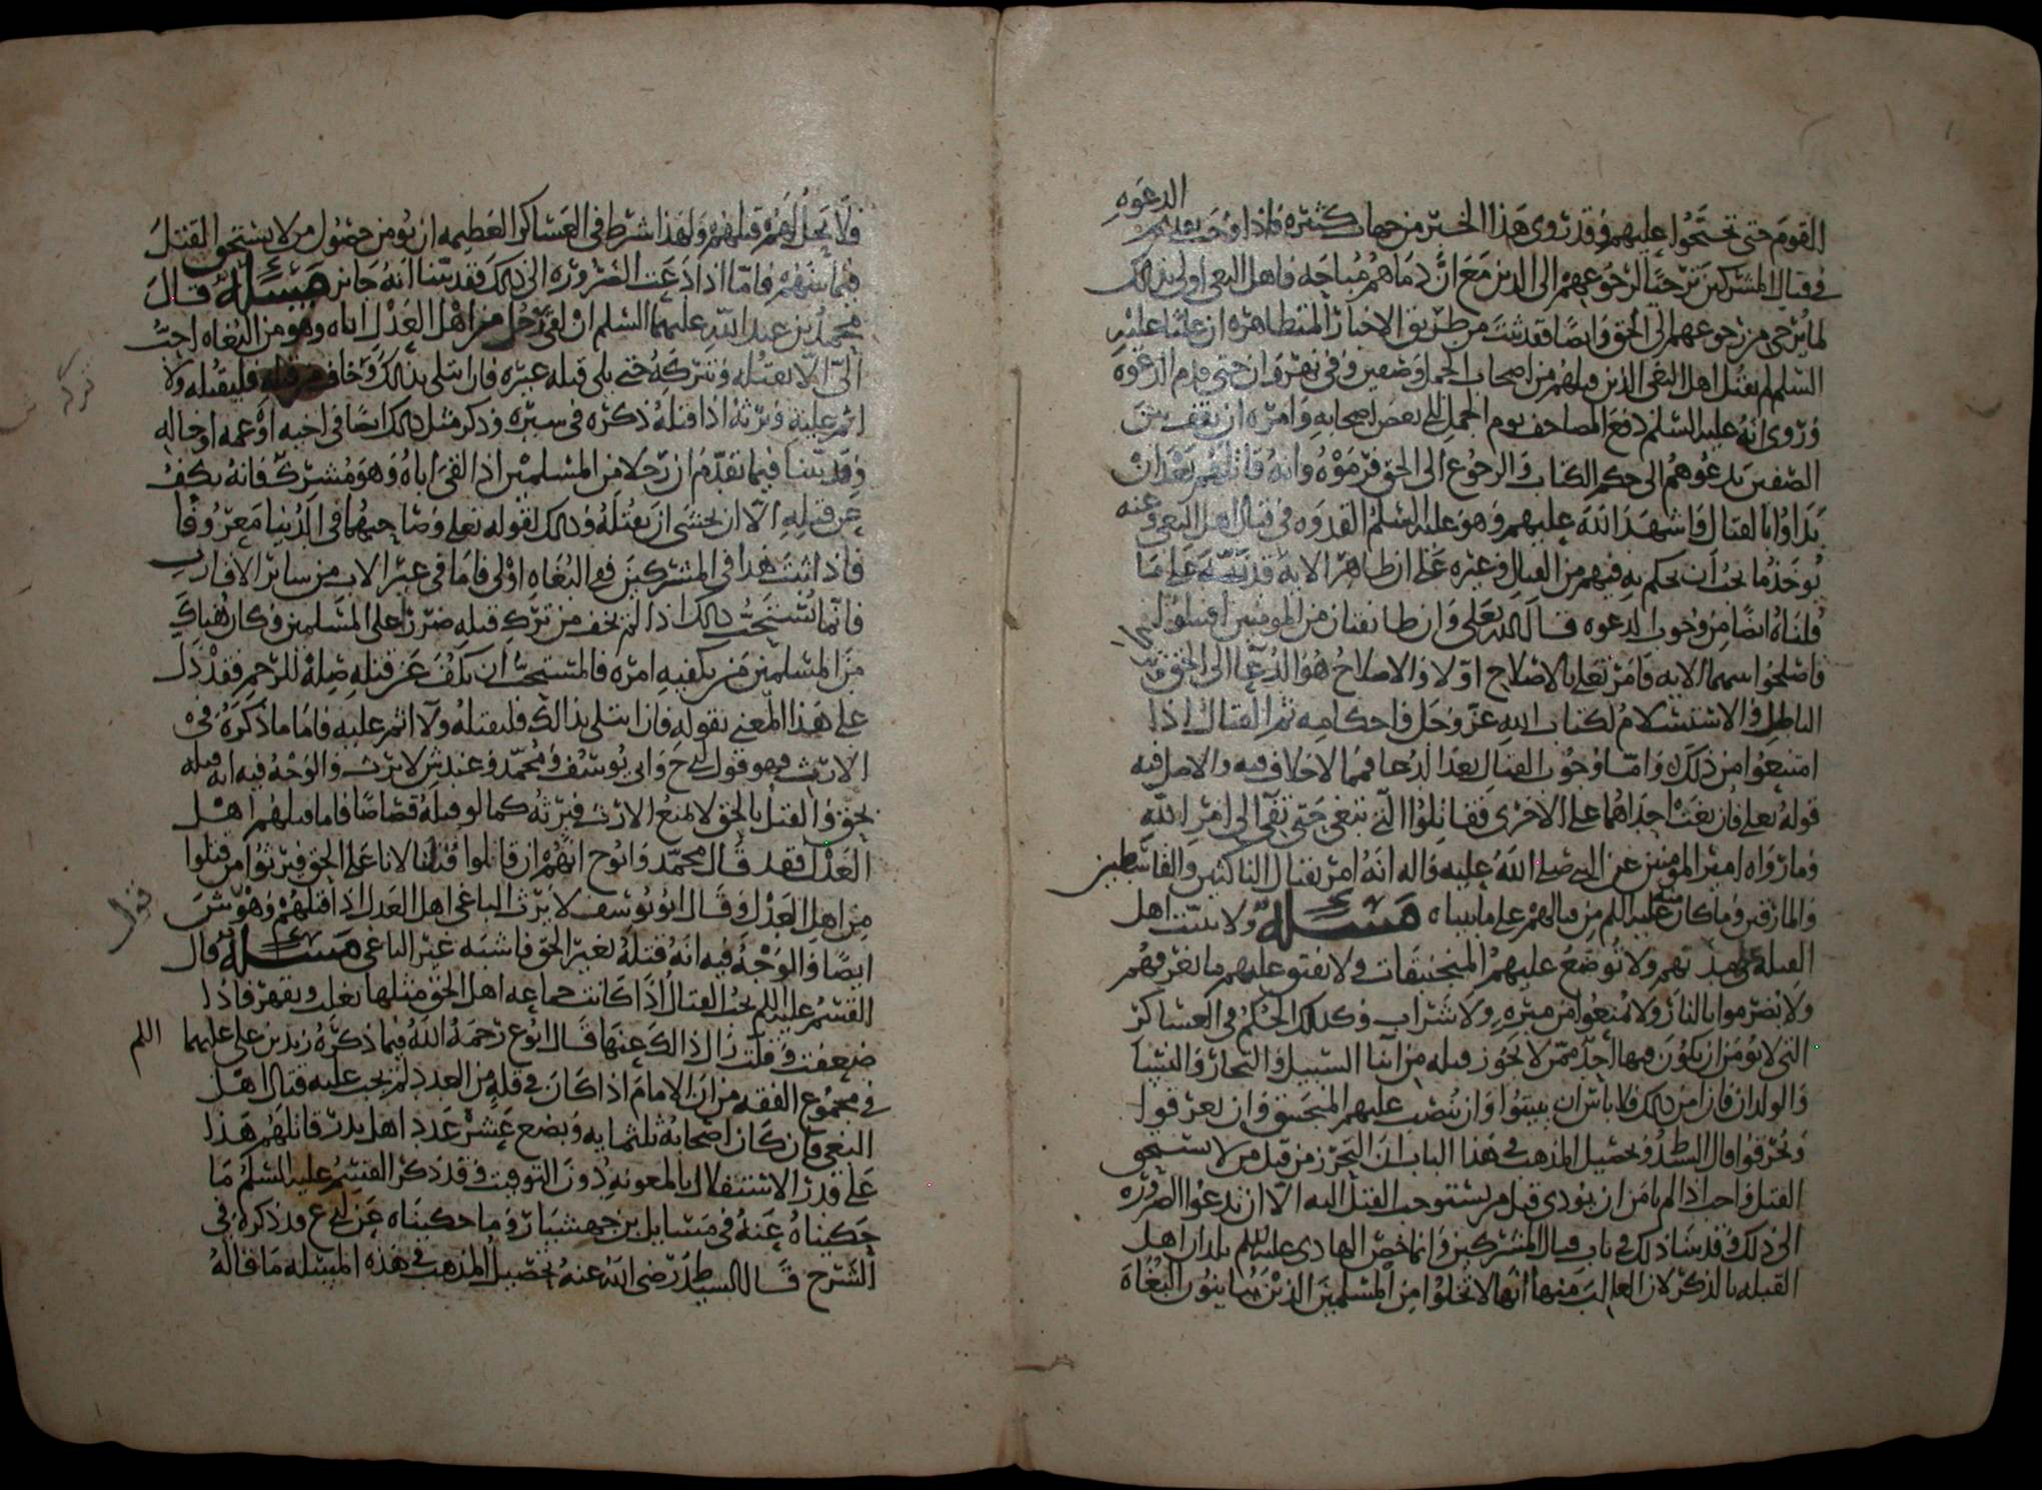 الدعوه
القوم حتى تحتجوا عليهم وقد روى هذا الخبر من جهات كثيره فاذا وجب تقديم
في قتال المشركين ترجيا لرجوعهم الى الدين مع ان دماهم مباحه فاهل البغي اولى بذلك
لما يرجى من رجوعهم الى الحق وايضا فقد ثبت من طريق الاخبار المتظاهره ان عليا عليه
السلم لم يقتل اهل البغي الذين قبلهم من اصحاب الجمل وصفين وفي نهروان حتى قدم الدعوه
وروى انه عليه السلم دفع المصاحف يوم الجمل الى بعض اصحابه وامره ان يقف بين
الصفين يدعوهم الى حكم الكتاب والرجوع الى الحق فرموه وانه قاتلهم بعد ان
بداوا بالقتال واشهد الله عليهم وهو عليه السلم القدوه في قتال اهل البغي وعنه
يوخذ ما يجب ان يحكم به فيهم من القتال وغيره على ان ظاهر الايه قد نبه على ما
قلناه ايضا من وجوب الدعوه قال الله تعلى وان طائفتان من المومنين اقتتلوا
فاصلحوا بينهما الايه فامر تعلى بالاصلاح اولا والاصلاح هو الدعا الى الحق
الباطل والاستسلام لكتاب الله عز وجل واحكامه ثم القتال اذا
امتنعوا من ذلك واما وجوب القتال بعد الدعا فمما لا خلاف فيه والاصل فيه
قوله تعلى فان بغت احداهما على الاخرى فقاتلوا التي تبغي حتى تفي الى امر الله
وما رواه امير المومنين عن النبي صلى الله عليه واله انه امر بقتال الناكثين والقاسطين
والمارقين وما كان منه عليه السلم من قتالهم على ما بيناه مسئلة ولا يبيت اهل
القبلة في مدنهم ولا توضع عليهم المنجنيقات ولا يفتق عليهم ما يغرقهم
ولا يضرموا بالنار ولا يمنعوا من ميره ولا شراب وكذلك الحكم في العساكر
التي لا يومن ان يكون فيها احد ممن لا يجوز قتله من ابنا السبيل والتجار والنسا
والولدان فان امن ذلك فلا باس ان يبيتوا وان ينصب عليهم المنجنيق وان يغرقوا
ويحرقوا قال السيد ط وتحصيل المذهب في هذا الباب ان التحرز من قتل من لا يستحق
القتل واجب اذا لم يامن ان يودي قتل من يستوجب القتل اليه الا ان تدعوا الضروره
الى ذلك وقد بينا ذلك في باب قتال المشركين وانما خص الهادي عليه السلم بلدان اهل
القبله بالذكر لان الغالب منها انها لا تخلوا من المسلمين الذين يباينون البغاه
فلا يحل لهم قتلهم ولهذا شرط في العساكر العظيمه ان يومن حصول من لا يستحق القتل
فيما بينهم فاما اذا دعت الضروره الى ذلك فقد بينا انه جائز مسئلة قال
محمد بن عبد الله عليهما السلم ان لقي رجل من اهل العدل اباه وهو من البغاه احب
الي الا يقتله ويتركه حتى يلي قتله غيره فان ابتلي بذلك وخاف من قتله فليقتله ولا
اثم عليه ويرثه اذا قتله ذكره في سيره وذكر مثل ذلك ايضا في اخيه او عمه او خاله
وقد بينا فيما تقدم ان رجلا من المسلمين اذا لقي اباه وهو مشرك فانه يكف
عن قتله الا ان يخشى ان يقتله وذلك لقوله تعلى وصاحبهما في الدنيا معروفا
فاذا ثبت هذا في المشركين ففي البغاه اولى فاما في غير الاب من سائر الاقارب
فانما يستحب ذلك اذا لم يخف من ترك قتله ضررا على المسلمين وكان هناك
من المسلمين من يكفيه امره فالمستحب ان يكف عن قتله صلة للرحم فقد دل
على هذا المعنى بقوله فان ابتلي بذلك فليقتله ولا اثم عليه فاما ما ذكره في
الارث فهو قول ح وابي يوسف ومحمد وعند ش لا يرث والوجه فيه انه قتله
بحق والقتل بالحق لا يمنع الارث فيرثه كما لو قتله قصاصا فاما قتلهم اهل
العدل فقد قال محمد وابو ح انهم ان قالوا قتلنا لانا على الحق فيرثوا من قتلوا
من اهل العدل وقال ابو يوسف لا يرث الباغي اهل العدل اذا قتلهم وهو قول ش
ايضا والوجه فيه انه قتله بغير الحق فاشبه غير الباغي مسئلة قال
القسم عليه السلم يجب القتال اذا كانت جماعه اهل الحق مثلها يغلب ويقهر فاذا
ضعفت وقلت زال ذالك عنها قال ابو ع رحمه الله فيما ذكره زيد بن علي عليهما السلم
في مجموع الفقه من ان الامام اذا كان في قلة من العدد لم يجب عليه قتال اهل
البغي فان كان اصحابه ثلثمايه وبضع عشر عدد اهل بدر قاتلهم هذا
على قدر الاستقلال بالمعونه دون التوقيت وقد ذكر القسم عليه السلم ما
حكيناه عنه في مسايل بن جهشيار وما حكيناه عن ابي ع قد ذكره في
الشرح قال السيد ط رضي الله عنه تحصيل المذهب في هذه المسئله ما قاله